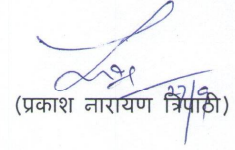 (प्रकाश नारायण त्रिपाठी)